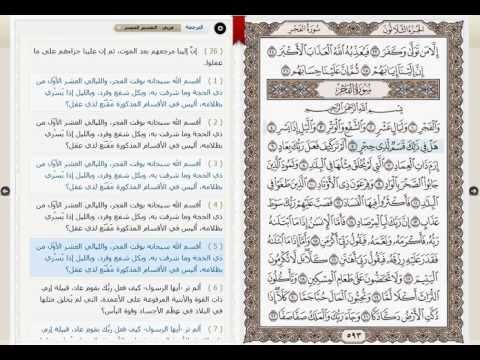 سُورَةُ الفَجْرِ
الجُزْءُ الثَّلَاثُونَ
إِلَّا مَن تَوَلَّىٰ وَكَفَرَ ﴿٢٣﴾ فَيُعَذِّبُهُ اللَّهُ الْعَذَابَ الْأَكْبَرَ ﴿٢٤﴾
إِنَّ إِلَيْنَا إِيَابَهُمْ ﴿٢٥﴾ ثُمَّ إِنَّ عَلَيْنَا حِسَابَهُم ﴿٢٦﴾
سُورَةُ الفَجْرِ
بِسْمِ اللَّهِ الرَّحْمَٰنِ الرَّحِيمِ
وَالْفَجْرِ ﴿١﴾ وَلَيَالٍ عَشْرٍ ﴿٢﴾ وَالشَّفْعِ وَالْوَتْرِ ﴿٣﴾ وَاللَّيْلِ إِذَا يَسْرِ ﴿٤﴾
هَلْ فِي ذَٰلِكَ قَسَمٌ لِّذِي حِجْرٍ ﴿٥﴾ أَلَمْ تَرَ كَيْفَ فَعَلَ رَبُّكَ بِعَادٍ ﴿٦﴾
إِرَمَ ذَاتِ الْعِمَادِ ﴿٧﴾ الَّتِي لَمْ يُخْلَقْ مِثْلُهَا فِي الْبِلَادِ ﴿٨﴾ وَثَمُودَ الَّذِينَ
جَابُوا الصَّخْرَ بِالْوَادِ ﴿٩﴾ وَفِرْعَوْنَ ذِي الْأَوْتَادِ ﴿١٠﴾ الَّذِينَ طَغَوْا فِي
الْبِلَادِ ﴿١١﴾ فَأَكْثَرُوا فِيهَا الْفَسَادَ ﴿١٢﴾ فَصَبَّ عَلَيْهِمْ رَبُّكَ سَوْطَ
عَذَابٍ ﴿١٣﴾ إِنَّ رَبَّكَ لَبِالْمِرْصَادِ ﴿١٤﴾ فَأَمَّا الْإِنسَانُ إِذَا مَا ابْتَلَاهُ
رَبُّهُ فَأَكْرَمَهُ وَنَعَّمَهُ فَيَقُولُ رَبِّي أَكْرَمَنِ ﴿١٥﴾ وَأَمَّا إِذَا مَا ابْتَلَاهُ
فَقَدَرَ عَلَيْهِ رِزْقَهُ فَيَقُولُ رَبِّي أَهَانَنِ ﴿١٦﴾ كَلَّا بَل لَّا تُكْرِمُونَ
الْيَتِيمَ ﴿١٧﴾ وَلَا تَحَاضُّونَ عَلَىٰ طَعَامِ الْمِسْكِينِ ﴿١٨﴾ وَتَأْكُلُونَ
التُّرَاثَ أَكْلًا لَّمًّا ﴿١٩﴾ وَتُحِبُّونَ الْمَالَ حُبًّا جَمًّا ﴿٢٠﴾ كَلَّا إِذَا
دُكَّتِ الْأَرْضُ دَكًّا دَكًّا ﴿٢١﴾ وَجَاءَ رَبُّكَ وَالْمَلَكُ صَفًّا صَفًّا ﴿٢٢﴾
٥٩٣
الترجمة
عربي - التفسير الميسر
( 26 ) إنَّ إلينا مرجعهم بعد الموت، ثم إن علينا جزاءهم على ما
عملوا.
( 1 ) أقسم الله سبحانه بوقت الفجر، والليالي العشر الأُوَل من
ذي الحجة وما شرفت به، وبكل شفع وفرد، وبالليل إذا يَسْري
بظلامه، أليس في الأقسام المذكورة مَقْنَع لذي عقل؟
( 2 ) أقسم الله سبحانه بوقت الفجر، والليالي العشر الأُوَل من
ذي الحجة وما شرفت به، وبكل شفع وفرد، وبالليل إذا يَسْري
بظلامه، أليس في الأقسام المذكورة مَقْنَع لذي عقل؟
( 3 ) أقسم الله سبحانه بوقت الفجر، والليالي العشر الأُوَل من
ذي الحجة وما شرفت به، وبكل شفع وفرد، وبالليل إذا يَسْري
بظلامه، أليس في الأقسام المذكورة مَقْنَع لذي عقل؟
( 4 ) أقسم الله سبحانه بوقت الفجر، والليالي العشر الأُوَل من
ذي الحجة وما شرفت به، وبكل شفع وفرد، وبالليل إذا يَسْري
بظلامه، أليس في الأقسام المذكورة مَقْنَع لذي عقل؟
( 5 ) أقسم الله سبحانه بوقت الفجر، والليالي العشر الأُوَل من
ذي الحجة وما شرفت به، وبكل شفع وفرد، وبالليل إذا يَسْري
بظلامه، أليس في الأقسام المذكورة مَقْنَع لذي عقل؟
( 6 ) ألم تر -أيها الرسول- كيف فعل ربُّك بقوم عاد، قبيلة إرم
ذات القوة والأبنية المرفوعة على الأعمدة، التي لم يُخلق مثلها
في البلاد في عِظَم الأجساد وقوة البأس؟
( 7 ) ألم تر -أيها الرسول- كيف فعل ربُّك بقوم عاد، قبيلة إرم